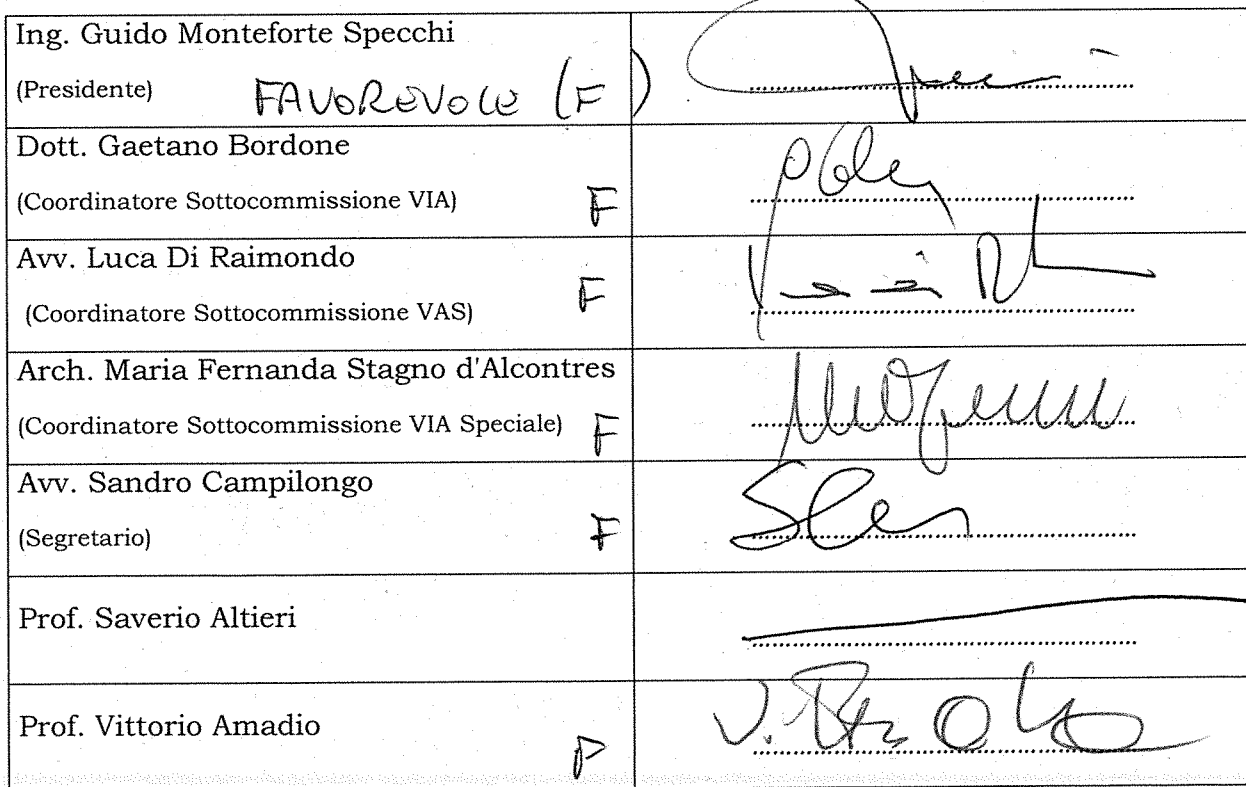 Ing. Guido Monteforte Specchi
(Presidente) FAVOREVOLE (F)
Dott. Gaetano Bordone
(Coordinatore Sottocommissione VIA) F
Avv. Luca Di Raimondo
(Coordinatore Sottocommissione VAS) F
Arch. Maria Fernanda Stagno d'Alcontres
(Coordinatore Sottocommissione VIA Speciale) F
Avv. Sandro Campilongo
(Segretario) F
Prof. Saverio Altieri
Prof. Vittorio Amadio